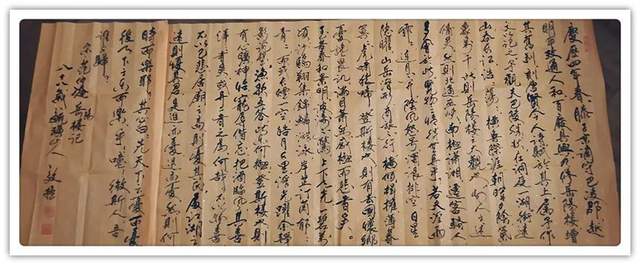 慶曆四年春滕子京謫守巴陵郡越
明年政通人和百廢具興乃修岳陽樓增
其舊制刻唐賢今人詩賦於其上屬予作
文以記之予觀夫巴陵勝狀在洞庭一湖銜遠
山吞長江浩浩湯湯橫無際涯朝暉夕陰氣
象萬千此則岳陽樓之大觀也前人之述
備矣然則北通巫峽南極瀟湘遷客騷人
多會於此覽物之情得無異乎若夫霪雨
霏霏連月不開陰風怒號濁浪排空日星
隱曜山岳潛形商旅不行檣傾楫摧薄暮
冥冥虎嘯猿啼登斯樓也則有去國懷鄉
憂讒畏譏滿目蕭然感極而悲者矣
至若春和景明波瀾不驚上下天光一碧萬
頃沙鷗翔集錦鱗游泳岸芷汀蘭郁郁
青青而或長煙一空皓月千里浮光躍金靜
影沉璧漁歌互答此樂何極登斯樓也則
有心曠神怡寵辱偕忘把酒臨風其喜
洋洋者矣異二者之為何哉不以物喜
不以己悲居廟堂之高則憂其民處江湖之
遠則憂其君是進亦憂退亦憂然則何
時而樂耶其必曰先天下之憂而憂
後天下之樂而樂乎噫微斯人吾
誰與歸
宋范仲淹岳陽樓記
八十八翁